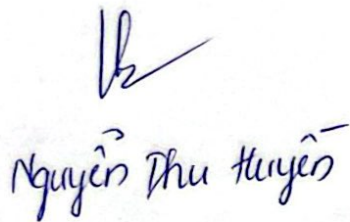 Nguyễn Thu Huyền